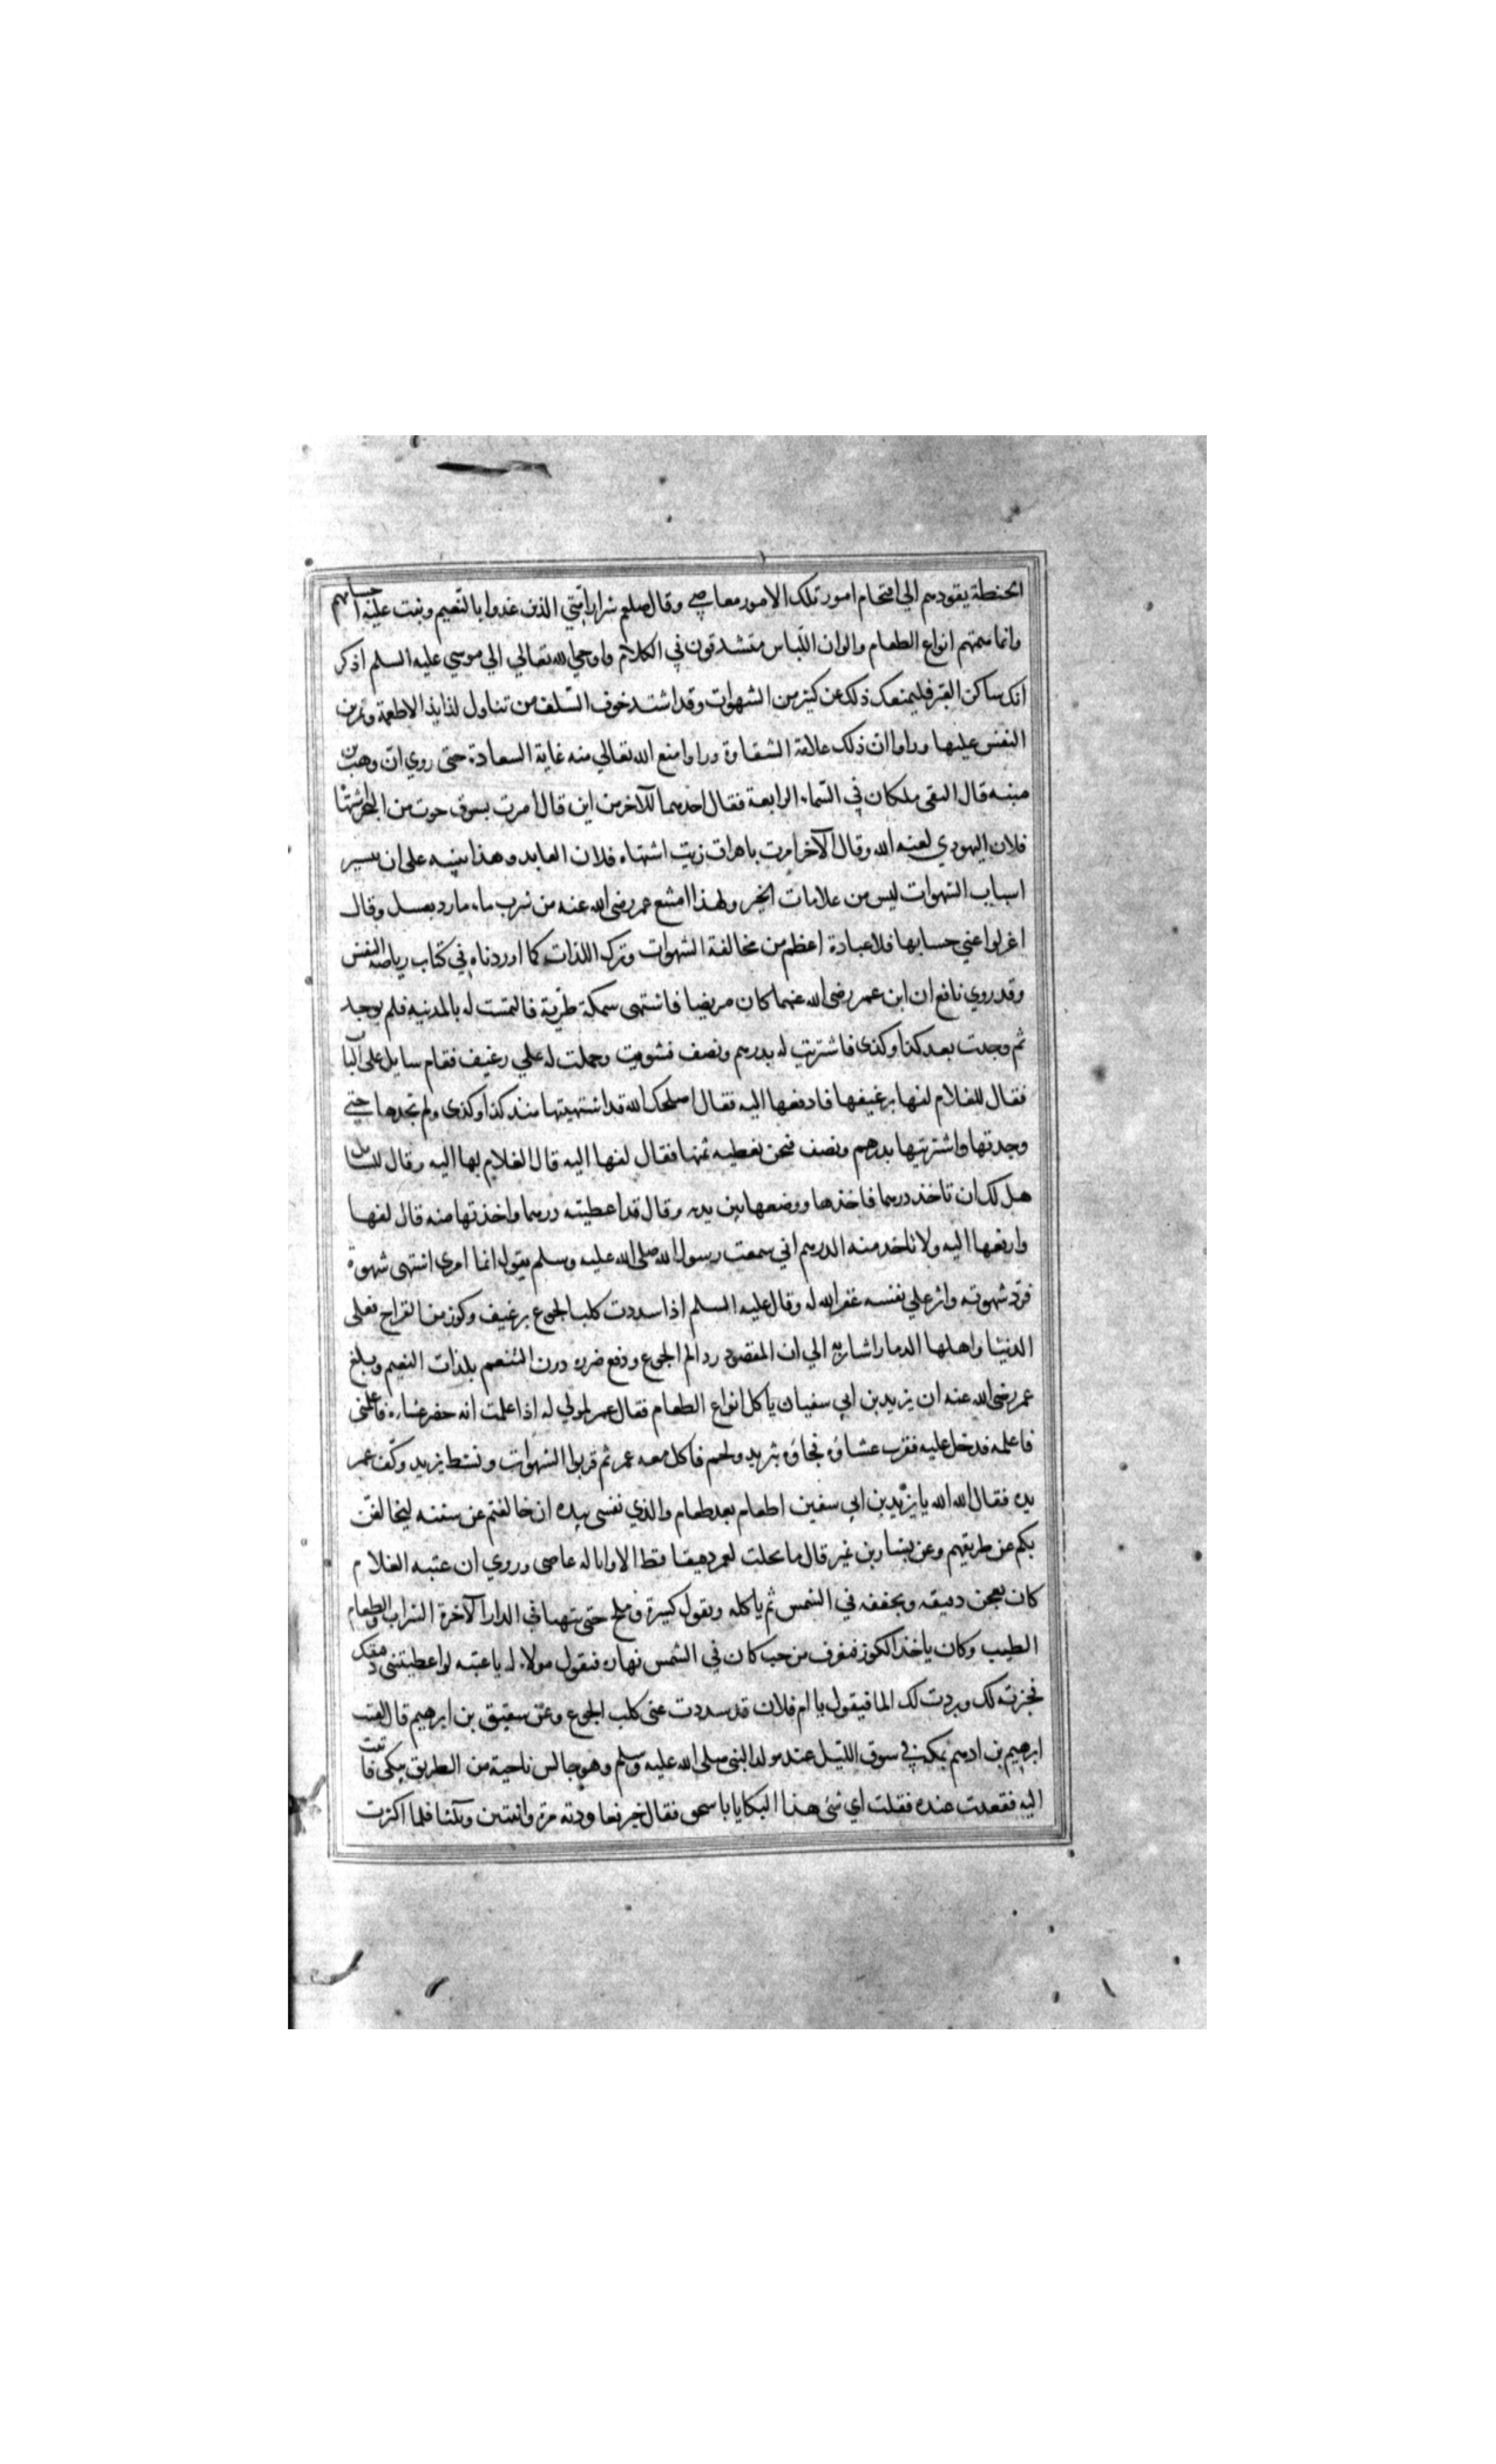 الحنطة يقودهم الي اقتحام امور تلك الامور معاصي وقال صلعم شرار امتي الذين غدوا بالنعيم ونبتت عليه اجسامهم
وانما همتهم انواع الطعام والوان اللباس متشدقون في الكلام واوحي الله تعالي الي موسي عليه السلم اذكر
انك ساكن القبر فليمنعك ذلك عن كثير من الشهوات وقد اشتد خوف السلف من تناول لذايذ الاطعمة وتمرين
النفس عليها وراوا ان ذلك علامة الشقاوة وراوا منع الله تعالي منه غاية السعادة حتى روي ان وهب بن
منبه قال التقى ملكان في السماء الرابعة فقال احدهما للآخر من اين قال امرت بسوق حوت من البحر اشتهاه
فلان اليهودي لعنه الله وقال الآخر امرت باهراق زيت اشتهاه فلان العابد وهذا تنبيه على ان تيسير
اسباب الشهوات ليس من علامات الخير ولهذا امتنع عمر رضى الله عنه من شرب ماء بارد بعسل وقال
اعزلوا عني حسابها فلا عبادة اعظم من مخالفة الشهوات وترك اللذات كما اوردناه في كتاب رياضة النفس
وقد روي نافع ان ابن عمر رضى الله عنهما كان مريضا فاشتهى سمكة طرية فالتمست له بالمدينه فلم يوجد
ثم وجدت بعد كذا وكذى فاشتريت له بدرهم ونصف فشويت وحملت له علي رغيف فقام سايل على الباب
فقال للغلام لفها برغيفها فادفعها اليه فقال اصلحك الله قد اشتهيتها منذ كذا وكذى ولم تجدها حتي
وجدتها واشتريتها بدرهم ونصف فنحن نعطيه ثمنها فقال لفها اليه قال الغلام بها اليه وقال للسايل
هل لك ان تاخذ درهما فاخذها ووضعها بين يديه وقال قد اعطيته درهما واخذتها منه قال لفها
وارفعها اليه ولا تاخد منه الدرهم اني سمعت رسول الله صلى الله عليه وسلم يقول انما امرى اشتهى شهوة
فرد شهوته واثر علي نفسه غفر الله له وقال عليه السلم اذا سددت كلب الجوع برغيف وكوز من القراح فعلى
الدنيا واهلها الدمار اشار به الي ان المقصود رد الم الجوع ودفع ضرره درن التنعم بلذات النعيم وبلغ
عمر رضى الله عنه ان يزيد بن ابي سفيان ياكل انواع الطعام فقال عمر لمولي له اذا علمت انه حضر عشاءه فاعلمنى
فاعلمه فدخل عليه فقرب عشاؤه فجاؤه بثريد ولحم فاكل معه عمر ثم قربوا الشهوات ونشط يزيد وكف عمر
يده فقال الله الله يا يزيد بن ابي سفين اطعام بعد طعام والذي نفسى بيده ان خالفتم عن سنته ليخالفن
بكم عن طريقهم وعن يسار بن غير قال ما نخلت لعمر دقيقا قط الا وانا له عاصى وروي ان عتبه الغلام
كان يعجن دقيقه ويجففه في الشمس ثم ياكله ويقول كسرة وملح حتى يتهيا في الدار الآخرة الشراب والطعام
الطيب وكان ياخذ الكوز فيغرف من حب كان في الشمس نهاره فيقول مولاه له يا عتبه لو اعطيتنى دقيقك
فخبزته لك وبردت لك الما فيقول يا ام فلان قد سددت عنى كلب الجوع وعن سقيق بن ابرهيم قال لقيت
ابرهيم بن ادهم بمكه في سوق الليل عند مولد النبى صلى الله عليه وسلم وهو جالس ناحية من الطريق يبكى فاتيت
اليه فقعدت عنده فقلت اي شئ هذا البكا يا با سحق فقال خير فعاودته مرة واثنتين وثلثا فلما اكثرت